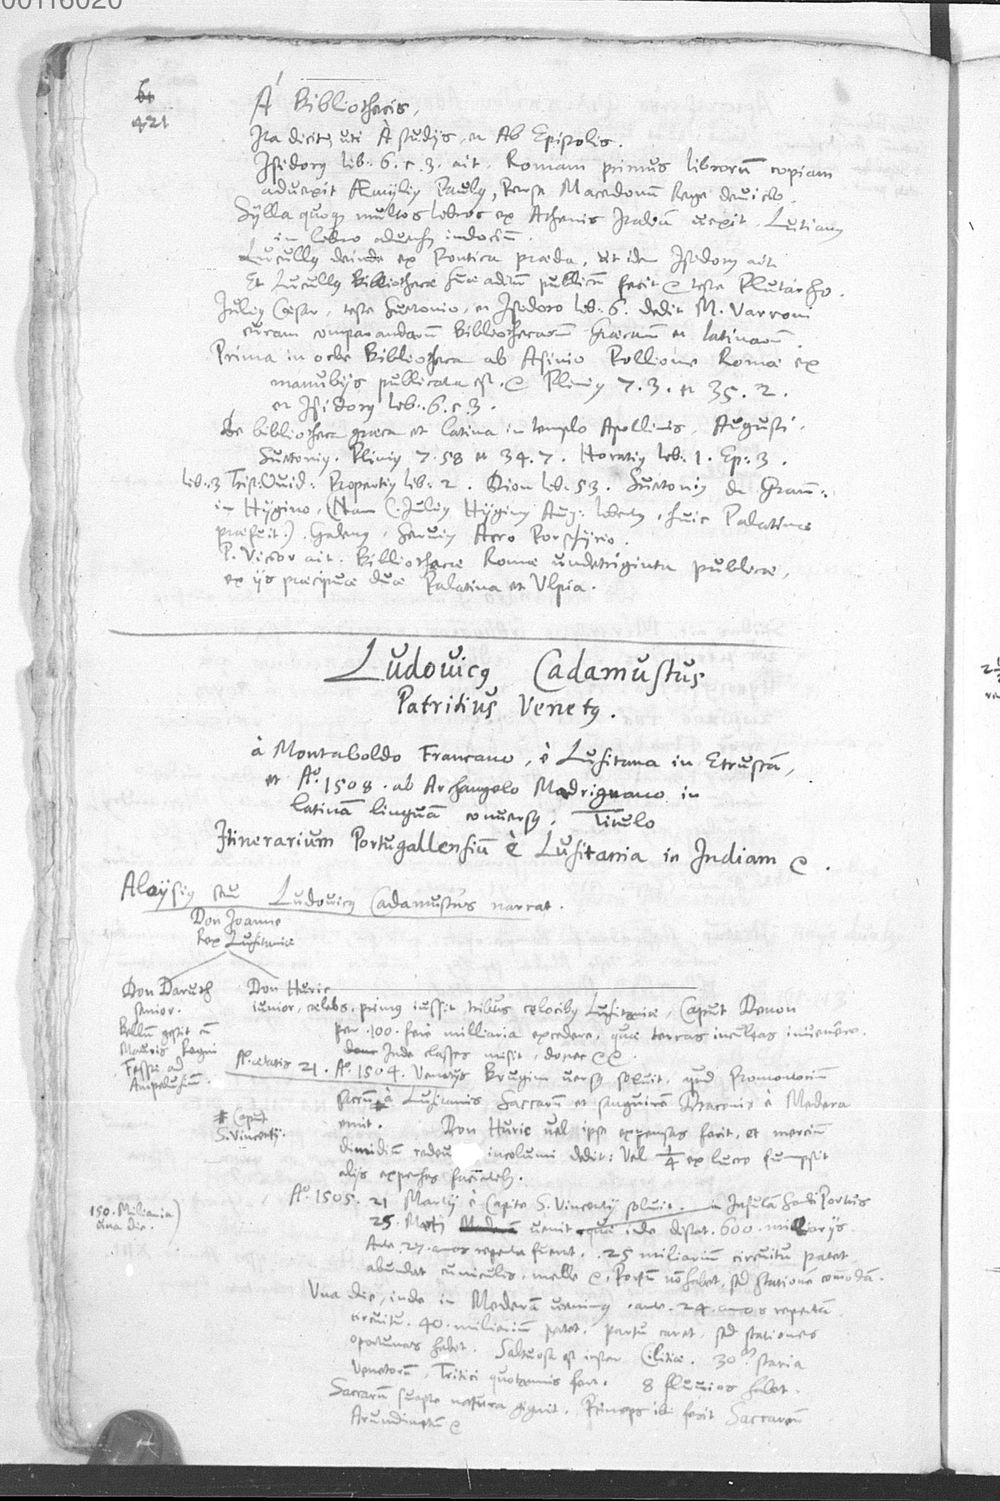 00116020
421
À Bibliothecis,
Ita dicitur uti À studijs, et Ab Epistolis.
Isidorus lib. 6. c. 3. ait. Romam primus librorum copiam
aduexit Æmylius Paulus, Perse Macedonum Rege deuicto.
Sylla quoque multos libros ex Athenis uexit. Lutianus
in libro indoctum.
Lucullus deinde ex Pontica præda, ut idem Isidorus ait
Et Lucullus Bibliothecæ suæ aditum publicum fecit teste Plutarcho.
Iulius Cæsar, teste Suetonio, et Isidoro lib. 6. dedit M. Varroni
curam comparandarum Bibliothecarum Græcarum et latinarum.
Prima in orbe Bibliotheca ab Asinio Pollione Romæ ex
manubijs publicata est. Plinius 7. 3. et 35. 2.
et Isidorus lib. 6. c. 3.
De bibliotheca græca et latina in templo Apollinis, Augusti.
Suetonius. Plinius 7. 58 et 34. 7. Horatius lib. 1. Ep. 3.
lib. 3 Trist. Ouid. Propertius lib. 2. Dion lib. 53. Suetonius de Gram.
in Hygino, (Nam C. Iulius Hyginus Aug. libertus, huic Palatinæ
præfuit.) Galenus, Seruius Acro Porphyrio.
P. Victor ait. Bibliothecæ Romæ undetriginta publicæ,
ex ijs præcipuæ duæ Palatina et Vlpia.
Ludouicus Cadamustus
Patritius Venetus.
à Montaboldo Francano, è Lusitana in Etruscam,
et Aº. 1508. ab Archangelo Madrignano in
latinam linguam conuersus. Titulo
Itinerarium Portugallensium è Lusitania in Indiam
Aloysius seu Ludouicus Cadamustus narrat.
Don Joanne
Rex Lusitaniæ
Don Daruth
senior.
Bellum gessit cum
Mauris Regni
Fessæ ad
Ampelusium.
Don Huric
iunior, cælebs, primus iussit tribus Lusitaniæ, Caput Donon
per 100. fere milliaria excedere, quæ terras incultas inuenere.
Inde classes misit, donec
Aº. ætatis 21. Aº. 1504. Venetijs Brugim uersus soluit, apud Promontorium
sacrum à Lusitanis Saccarum et sanguinem Draconis è Medera
emit. Don Huric uel ipse expensas facit, et mercium
# Caput
S. Vincentij.
dimidium incolumi dedit: Vel 1/4 ex lucro sumpsit
alijs expensas facientibus.
Aº. 1505. 21 Martij è Capite S. Vincentij soluit. in Insulam Sancti Portus
150. Miliaria
una die.
25. Martij uenit quæ inde distat. 600. miliarijs
Ante 27. annos reperta fuerat. 25 miliarium circuitu patet
abundat cuniculis, melle Portum non habet, sed stationem comodam.
Vna die, inde in Mederam uenimus ante 24 annos repertam
circuitu. 40. miliarium patet. portu caret, sed stationes
oportunas habet. Saltuosa est instar Ciliciæ. 30 staria
Venetorum, Tritici quotannis fert. 8 fluuios habet.
Saccarum suapte natura gignit. Princeps ibi fecit Saccarum
Arundinetum